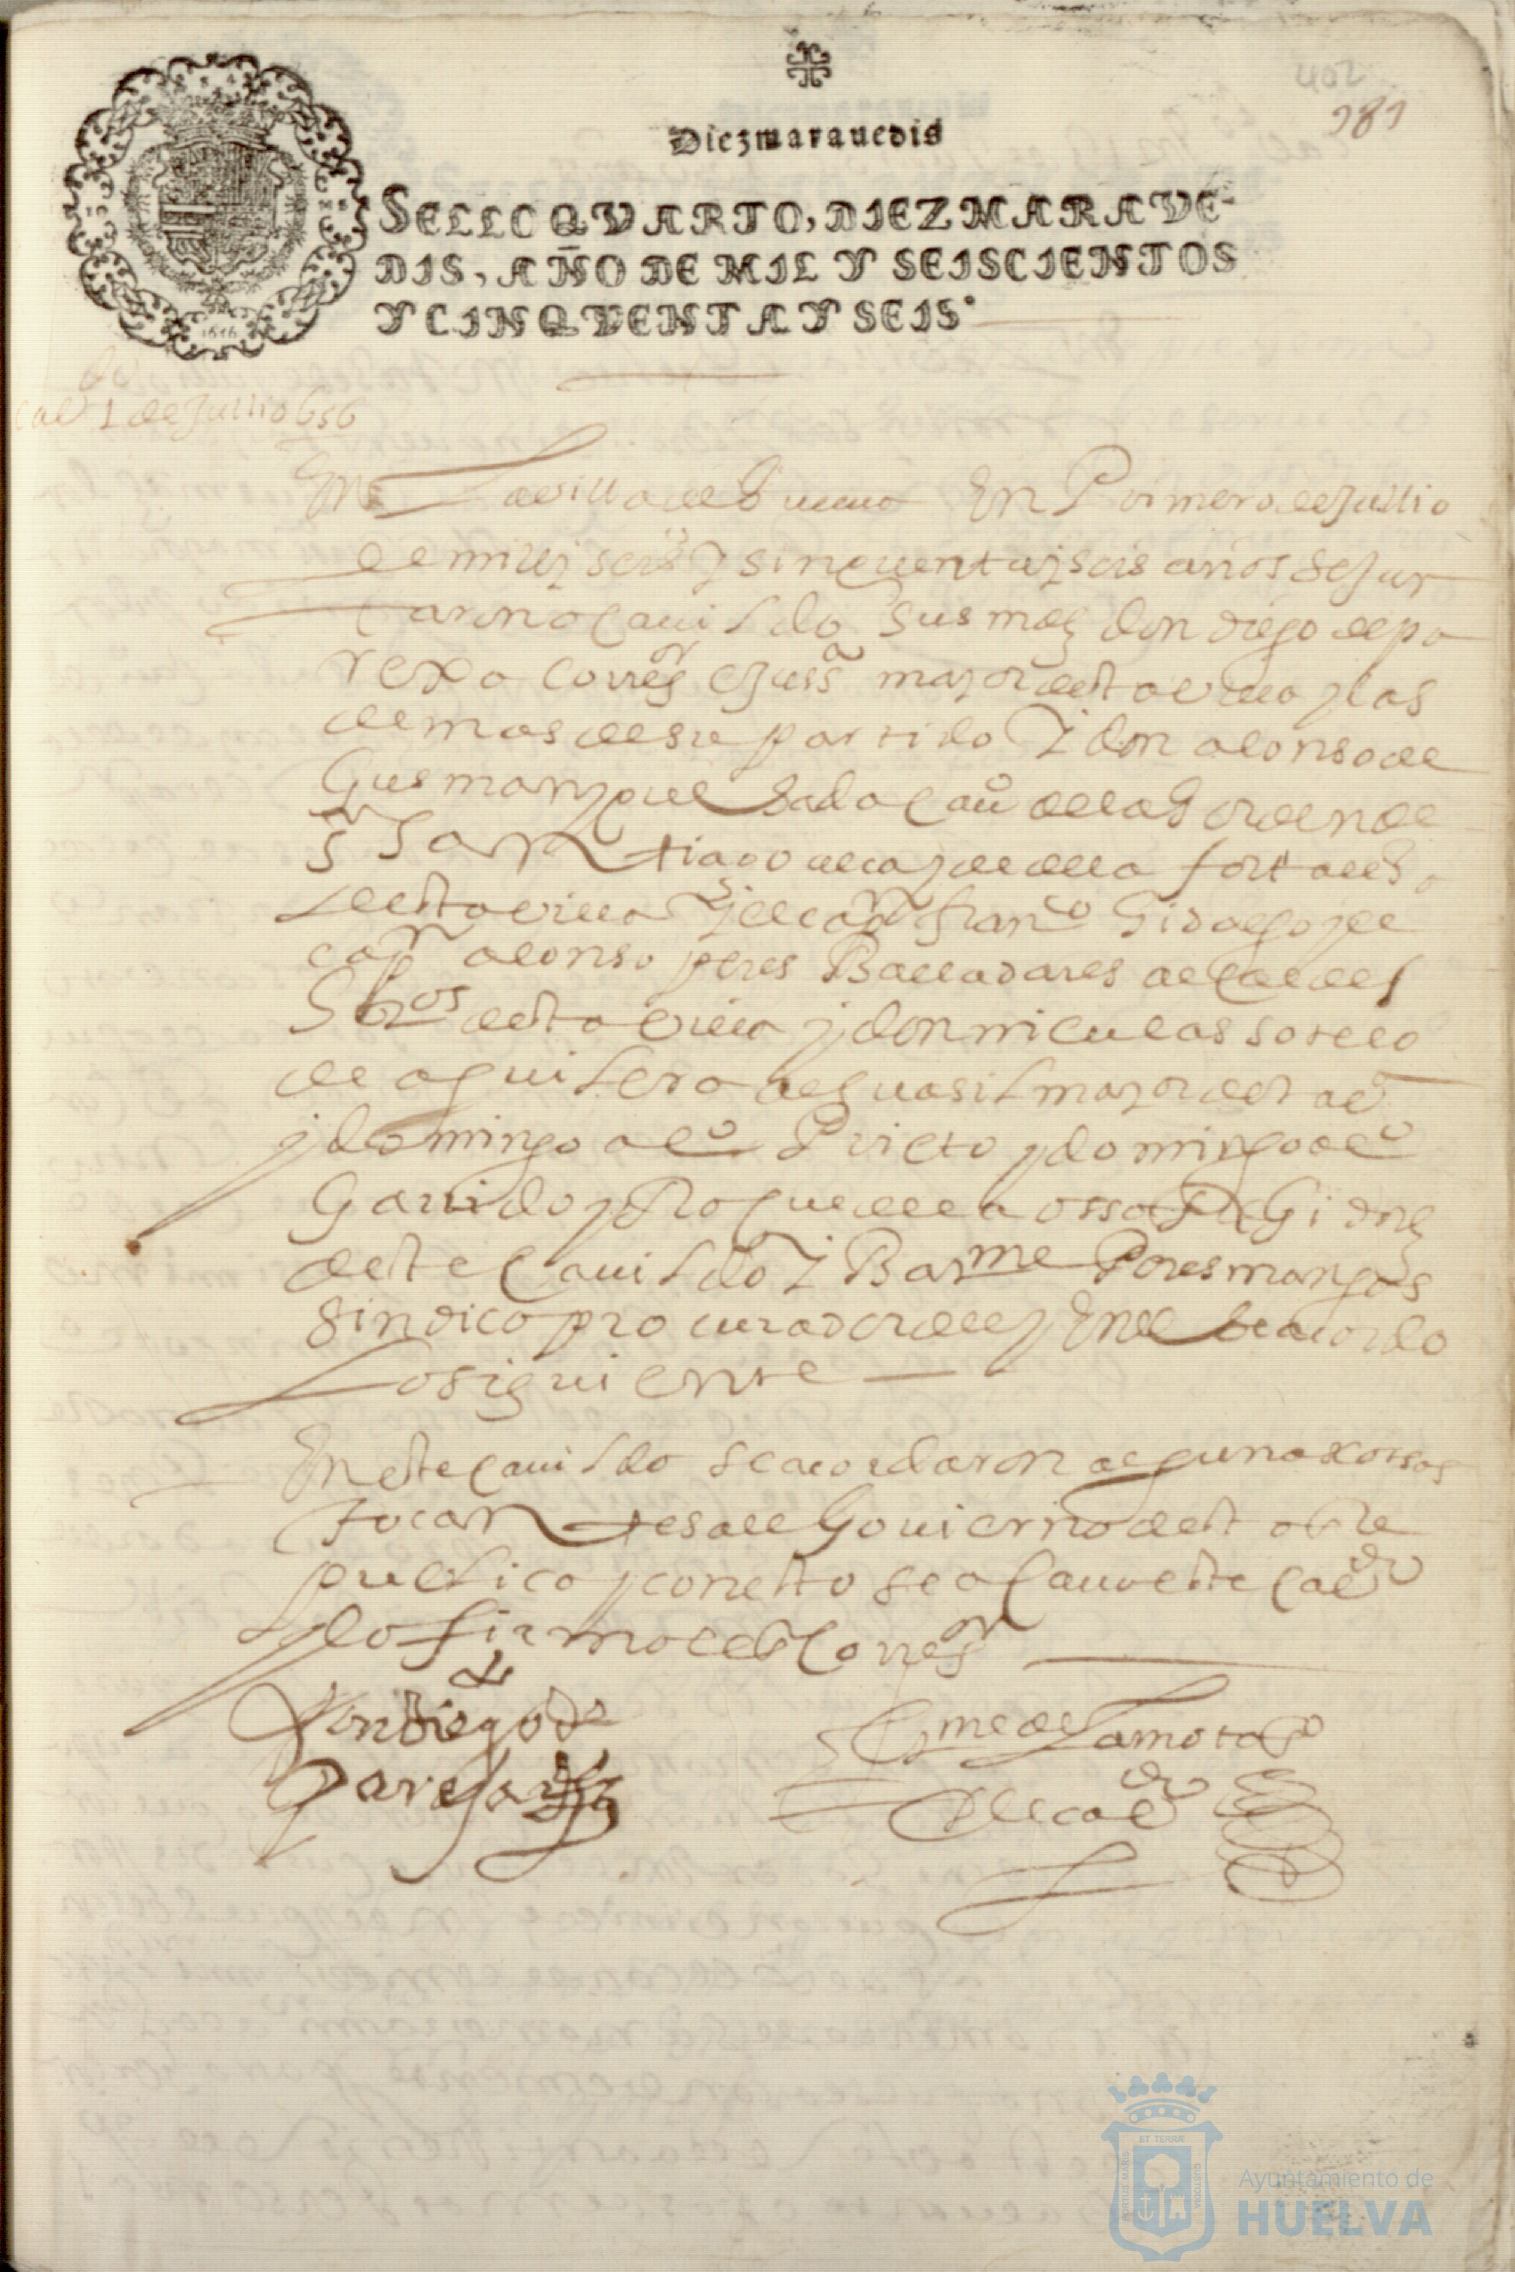 402
181
Diezmarauedis
SELLO QVARTO, DIEZ MARAVE-
DIS, AÑO DE MIL Y SEISCIENTOS
Y CINQVENTA Y SEIS.
1656
Cauº 1 de Jullio 656
En La villa de Guelua En Primero de Jullio
de mill y seisºˢ y sinquenta y seis años se Jun
taron a Cauildo sus mds don diego de pa
rexa Corregºʳ e Jussª mayor desta villa y las
demas de su partido y don alonso de
Gusman y quesada Cauº de la orden de
Sʳ San tiago alcayde de la fortalesa
desta villa y el capⁿ franᶜº Hidalgo y el
capⁿ alonso peres Balladares alcaldes
hordinariºˢ desta villa y don niculas sotelo
de aguilera alguasil mayor desta vª
y domingo alº Prieto y domingo alº
Garrido y Roque de la ossa Regidores
deste Cauildo y Barᵐᵉ Peres mangas
sindico procurador del y En el se acordo
Lo siguiente
En este Cauildo se acordaron algunas cossas
tocantes al Gouierno desta Re
publica y con esto se acauo este Caudº
y lo firmo el sʳ Corregºʳ
Don Diego de
Pareja
Barᵐᵉ de La mota
del caudº
PORTUS MARIS
ET TERRÆ
CUSTODIA
Ayuntamiento de
HUELVA